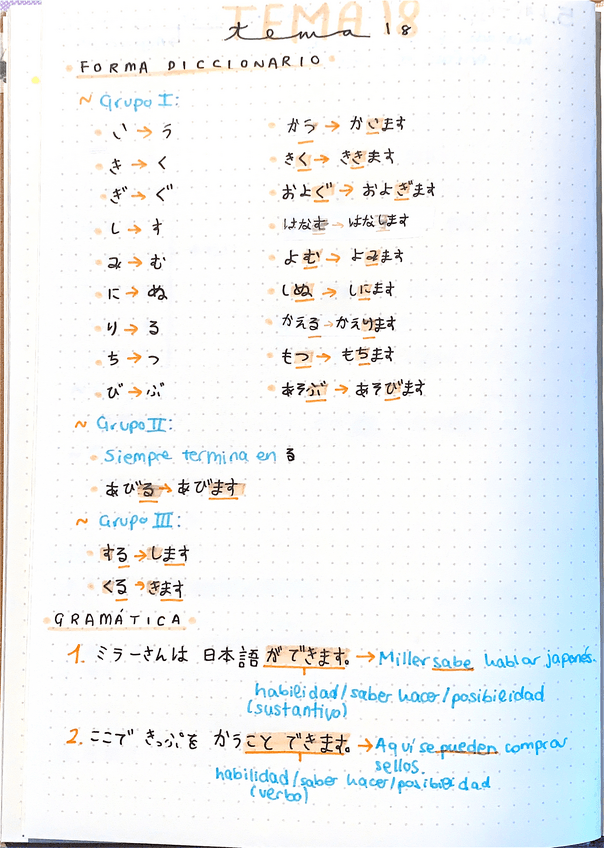 TEMA 18
tema 18
FORMA DICCIONARIO
~ Grupo I:
い → う かう → かいます
き → く きく → ききます
ぎ → ぐ およぐ → およぎます
し → す はなむ → はなします
み → む よむ → よみます
に → ぬ しぬ → しにます
り → る かえる → かえります
ち → つ もつ → もちます
び → ぶ あそぶ → あそびます
~ Grupo II:
Siempre termina en る
あびる → あびます
~ Grupo III:
する → します
くる → きます
GRAMÁTICA
1. ミラーさんは 日本語 ができます。 → Miller sabe hablar japonés.
habilidad/saber hacer/posibilidad
(sustantivo)
2. ここで きっぷを かうこと できます。 → Aquí se pueden comprar
sellos.
habilidad/saber hacer/posibilidad
(verbo)